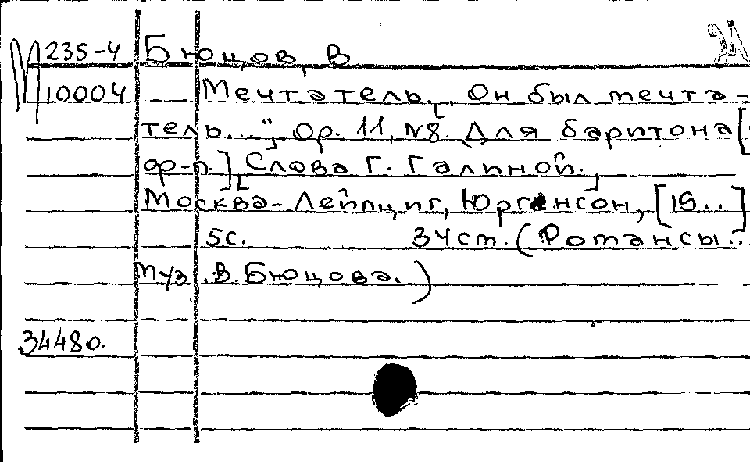 М 235-4 Бюцов, В
10004 Мечтатель. „Он был мечта-
тель...", Ор. 11, №8. Для баритона [
ф-п.], Слова Г. Галиной.
Москва-Лейпциг, Юргенсон, [19..]
5с. 34 ст. (Романсы...
муз. В. Бюцова.)
34480.